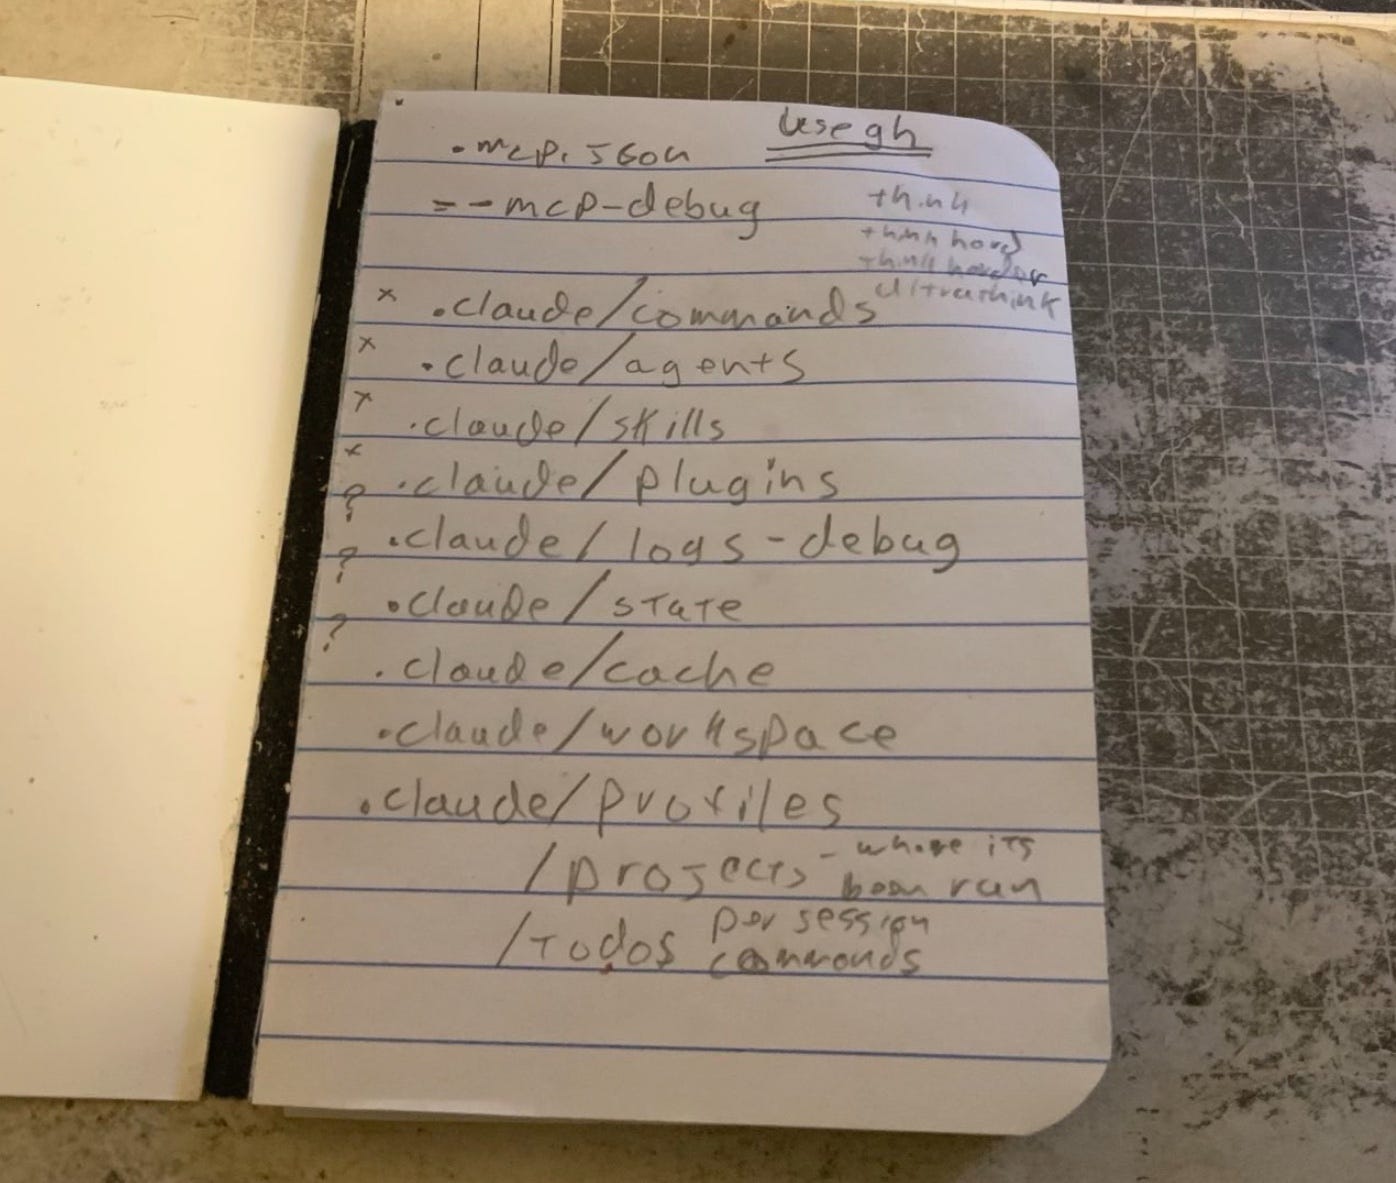 Use gh
.mcp.json
--mcp-debug
think
think hard
think harder
ultrathink
x .claude/commands
x .claude/agents
x .claude/skills
x .claude/plugins
? .claude/logs-debug
? .claude/state
? .claude/cache
.claude/workspace
.claude/profiles
/projects - where its
been ran
/Todos per session
commands